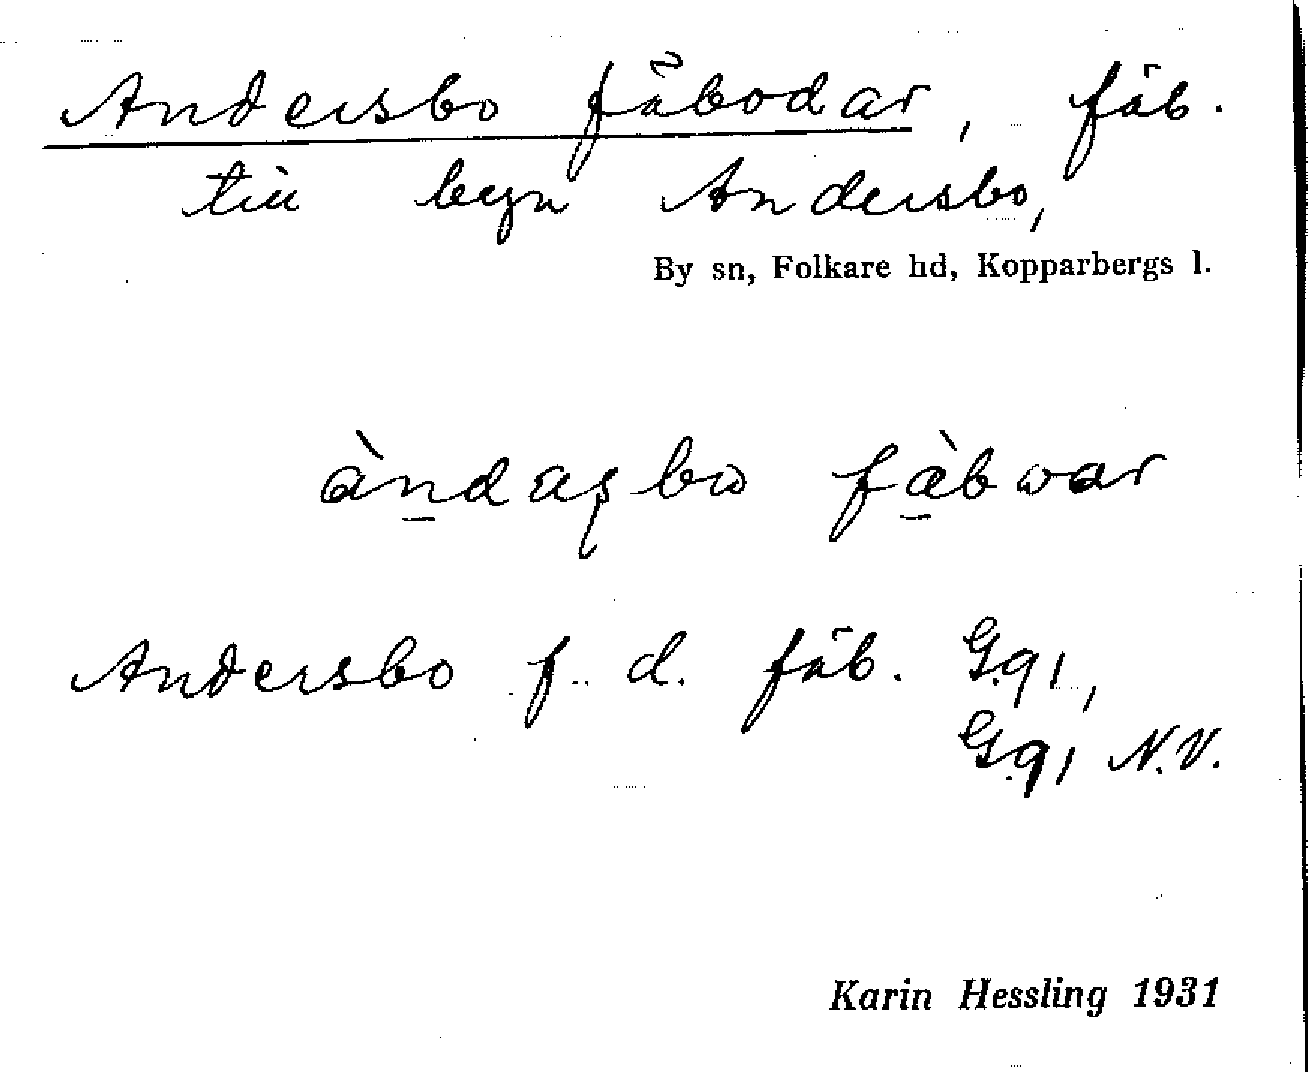 Andersbo fäbodar, fäb.
till byn Andersbo,
By sn, Folkare hd, Kopparbergs l.
àn̠dasbω fæ̠̀bωar
Andersbo f. d. fäb. G.91,
G.91 N.V.
Karin Hessling 1931